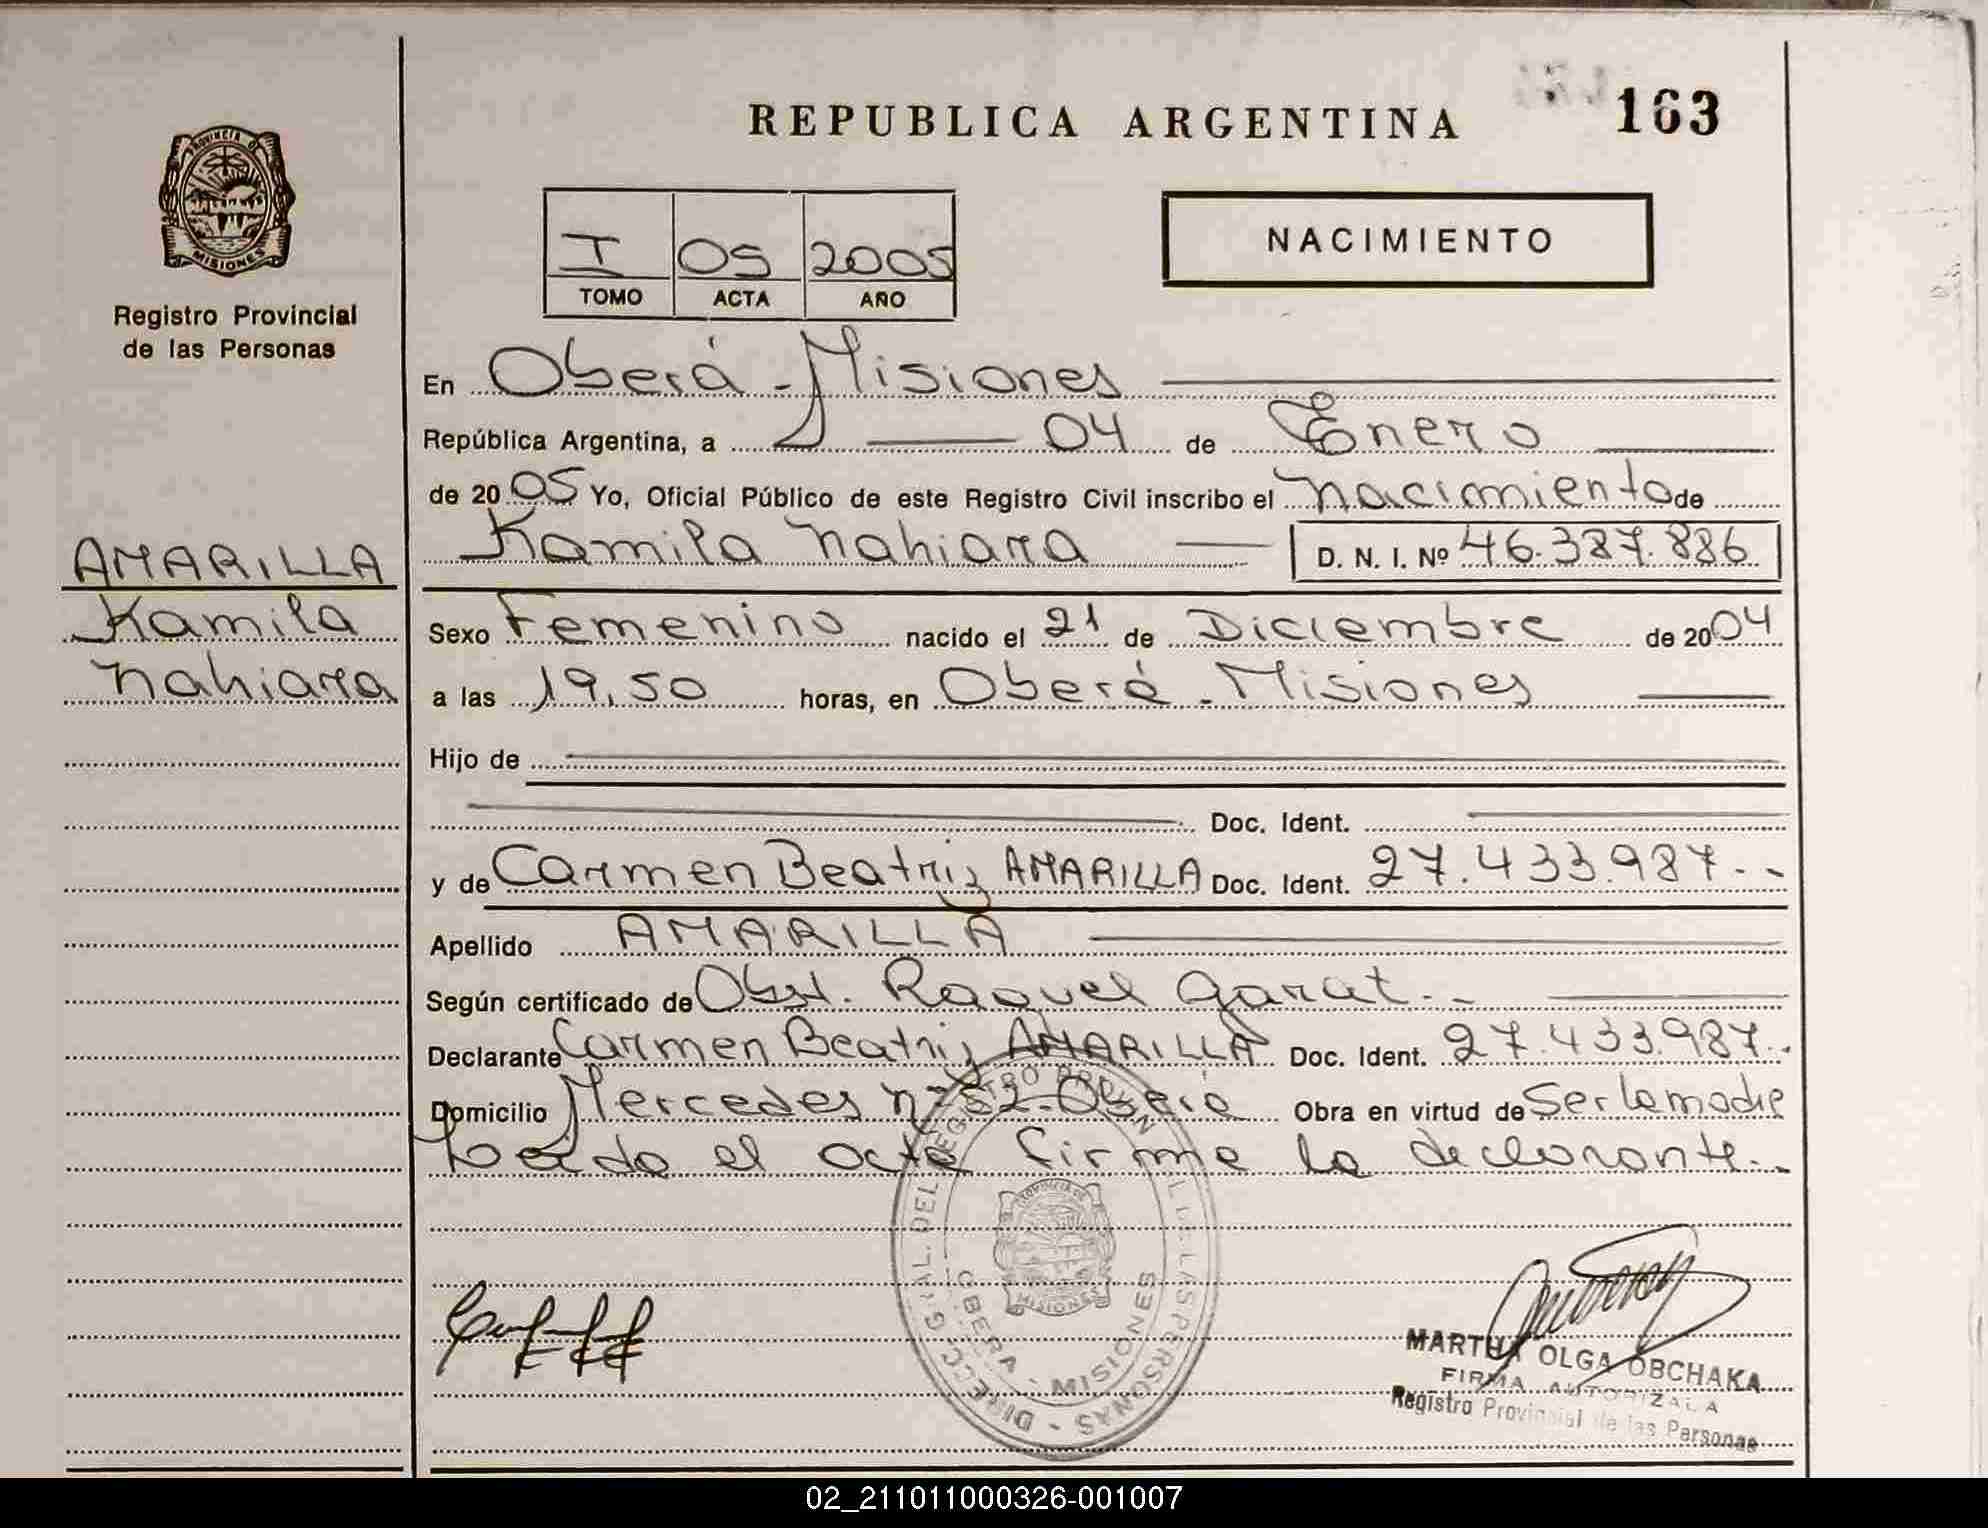 REPUBLICA ARGENTINA 163
PROVINCIA DE
MISIONES
Registro Provincial
de las Personas
I 05 2005
TOMO ACTA AÑO
NACIMIENTO
En Oberá - Misiones
República Argentina, a 04 de Enero
de 2005 Yo, Oficial Público de este Registro Civil inscribo el nacimiento de
Kamila Nahiara D. N. I. Nº 46.387.886
AMARILLA
Kamila
Nahiara
Sexo Femenino nacido el 21 de Diciembre de 2004
a las 19,50 horas, en Oberá - Misiones
Hijo de
Doc. Ident.
y de Carmen Beatriz AMARILLA Doc. Ident. 27.433.987.--
Apellido AMARILLA
Según certificado de Obst. Raquel Garat.-
Declarante Carmen Beatriz AMARILLA Doc. Ident. 27.433.987.-
Domicilio Mercedes nº 52-Oberá Obra en virtud de Ser la madre
Leida el acta firma la declarante.-
DIRECC. GRAL. DEL REGISTRO PROVINCIAL DE LAS PERSONAS -
OBERA - MISIONES
MISIONES
MARTHA OLGA OBCHAKA
FIRMA AUTORIZADA
Registro Provincial de las Personas
02_211011000326-001007